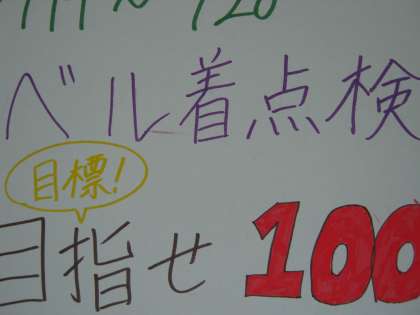 ベル着点検
目標!
目指せ 100